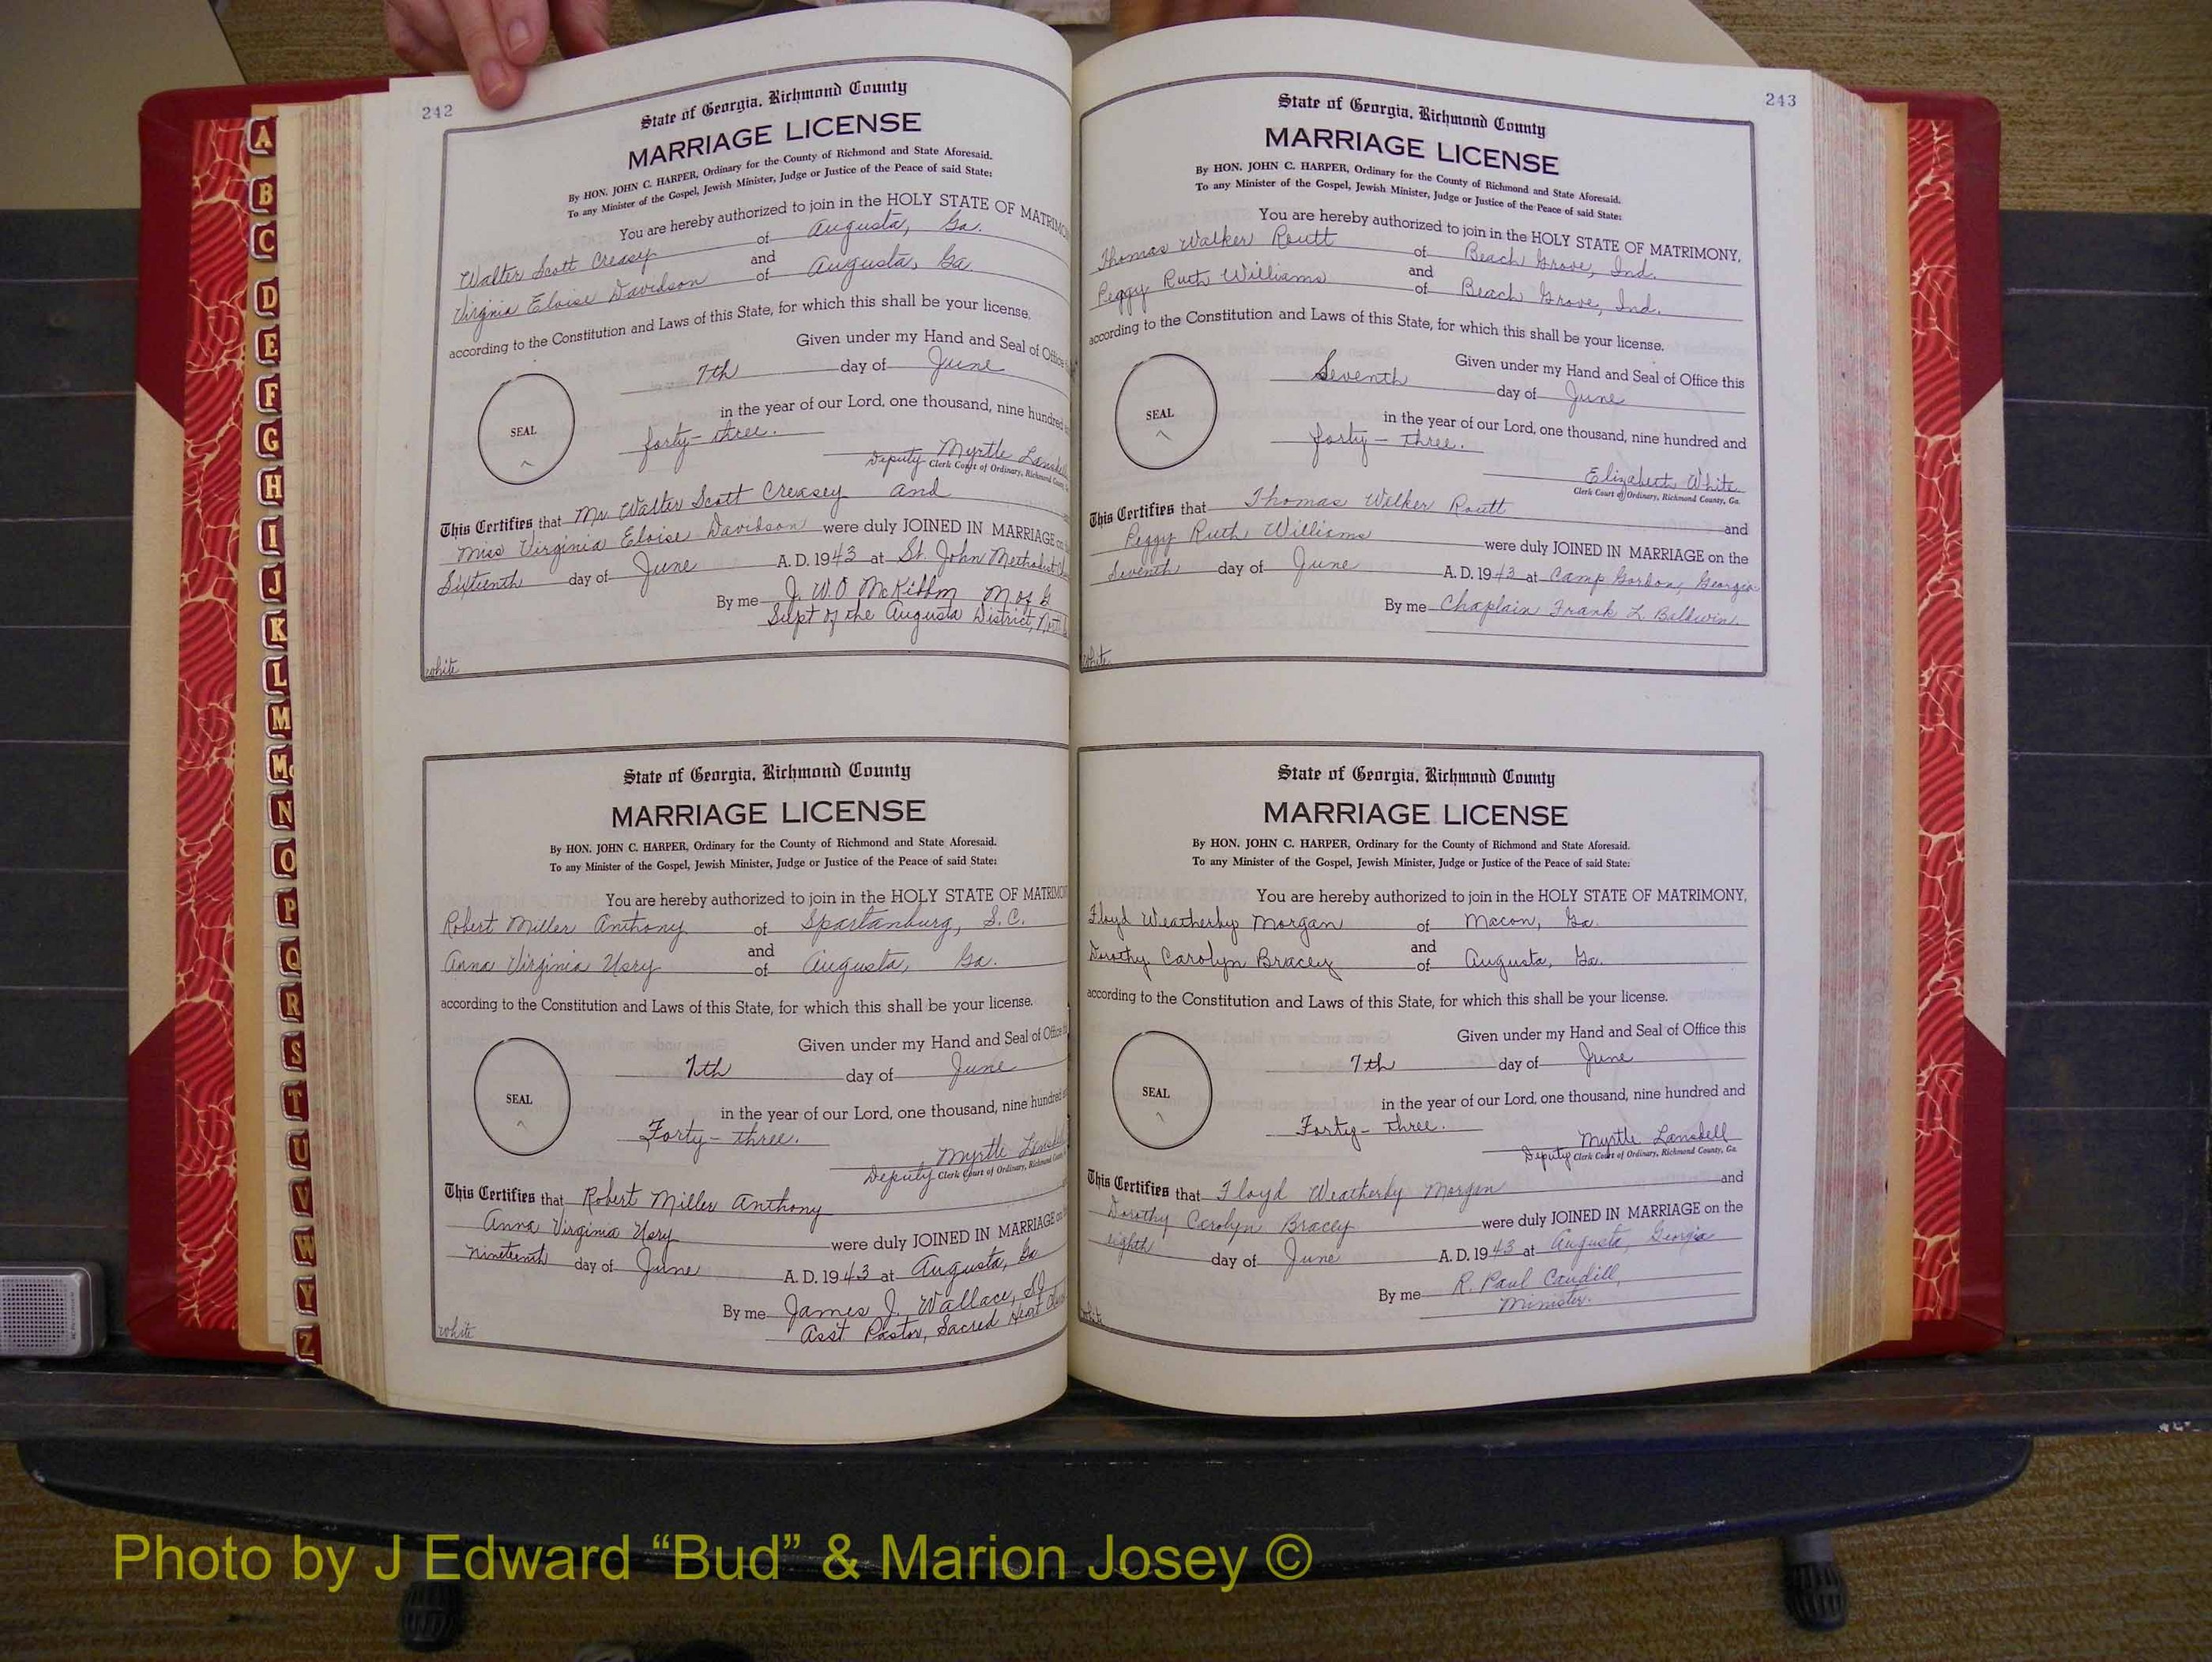 242
State of Georgia, Richmond County
MARRIAGE LICENSE
By HON. JOHN C. HARPER, Ordinary for the County of Richmond and State Aforesaid.
To any Minister of the Gospel, Jewish Minister, Judge or Justice of the Peace of said State:
You are hereby authorized to join in the HOLY STATE OF MATRIMO
Walter Scott Creasy of Augusta, Ga.
and
Virginia Eloise Davidson of Augusta, Ga.
according to the Constitution and Laws of this State, for which this shall be your license.
Given under my Hand and Seal of Office
7th day of June
in the year of our Lord, one thousand, nine hundred
SEAL
forty-three.
Myrtle
Deputy Clerk Court of Ordinary, Richmond
This Certifies that Mr Walter Scott Creasey and
Miss Virginia Eloise Davidson were duly JOINED IN MARRIAGE
Sixteenth day of June A. D. 1943 at St. John Methodist
By me J. W. O
Supt of the Augusta District,
white
State of Georgia, Richmond County
MARRIAGE LICENSE
By HON. JOHN C. HARPER, Ordinary for the County of Richmond and State Aforesaid.
To any Minister of the Gospel, Jewish Minister, Judge or Justice of the Peace of said State:
You are hereby authorized to join in the HOLY STATE OF MATRIMO
Robert Miller Anthony of Spartanburg, S.C.
and
Anna Virginia Usry of Augusta, Ga.
according to the Constitution and Laws of this State, for which this shall be your license.
Given under my Hand and Seal of Office
7th day of June
in the year of our Lord, one thousand, nine hundred
SEAL
Forty-three.
Myrtle
Deputy Clerk Court of Ordinary, Richmond
This Certifies that Robert Miller Anthony
Anna Virginia Usry were duly JOINED IN MARRIAGE
nineteenth day of June A. D. 1943 at Augusta, Ga
By me James J. Wallace, SJ
Asst Pastor, Sacred Heart
white
243
State of Georgia, Richmond County
MARRIAGE LICENSE
By HON. JOHN C. HARPER, Ordinary for the County of Richmond and State Aforesaid.
To any Minister of the Gospel, Jewish Minister, Judge or Justice of the Peace of said State:
You are hereby authorized to join in the HOLY STATE OF MATRIMONY,
Thomas Walker Routt of Beach Grove, Ind.
and
Peggy Ruth Williams of Beach Grove, Ind.
according to the Constitution and Laws of this State, for which this shall be your license.
Given under my Hand and Seal of Office this
Seventh day of June
in the year of our Lord, one thousand, nine hundred and
SEAL
forty-three.
Elizabeth White
Clerk Court of Ordinary, Richmond County, Ga.
This Certifies that Thomas Walker Routt and
Peggy Ruth Williams were duly JOINED IN MARRIAGE on the
Seventh day of June A. D. 1943 at Camp Gordon, Georgia
By me Chaplain Frank L. Baldwin
white
State of Georgia, Richmond County
MARRIAGE LICENSE
By HON. JOHN C. HARPER, Ordinary for the County of Richmond and State Aforesaid.
To any Minister of the Gospel, Jewish Minister, Judge or Justice of the Peace of said State:
You are hereby authorized to join in the HOLY STATE OF MATRIMONY,
Floyd Weatherby Morgan of Macon, Ga.
and
Dorothy Carolyn Bracey of Augusta, Ga.
according to the Constitution and Laws of this State, for which this shall be your license.
Given under my Hand and Seal of Office this
7th day of June
in the year of our Lord, one thousand, nine hundred and
SEAL
Forty-three.
Myrtle Lansdell
Deputy Clerk Court of Ordinary, Richmond County, Ga.
This Certifies that Floyd Weatherby Morgan and
Dorothy Carolyn Bracey were duly JOINED IN MARRIAGE on the
eighth day of June A. D. 1943 at Augusta, Georgia
By me R. Paul Caudill,
Minister.
white
A
B
C
D
E
F
G
H
I
J
K
L
M
Mc
N
O
P
Q
R
S
T
U
V
W
Y
Z
Photo by J Edward “Bud” & Marion Josey ©